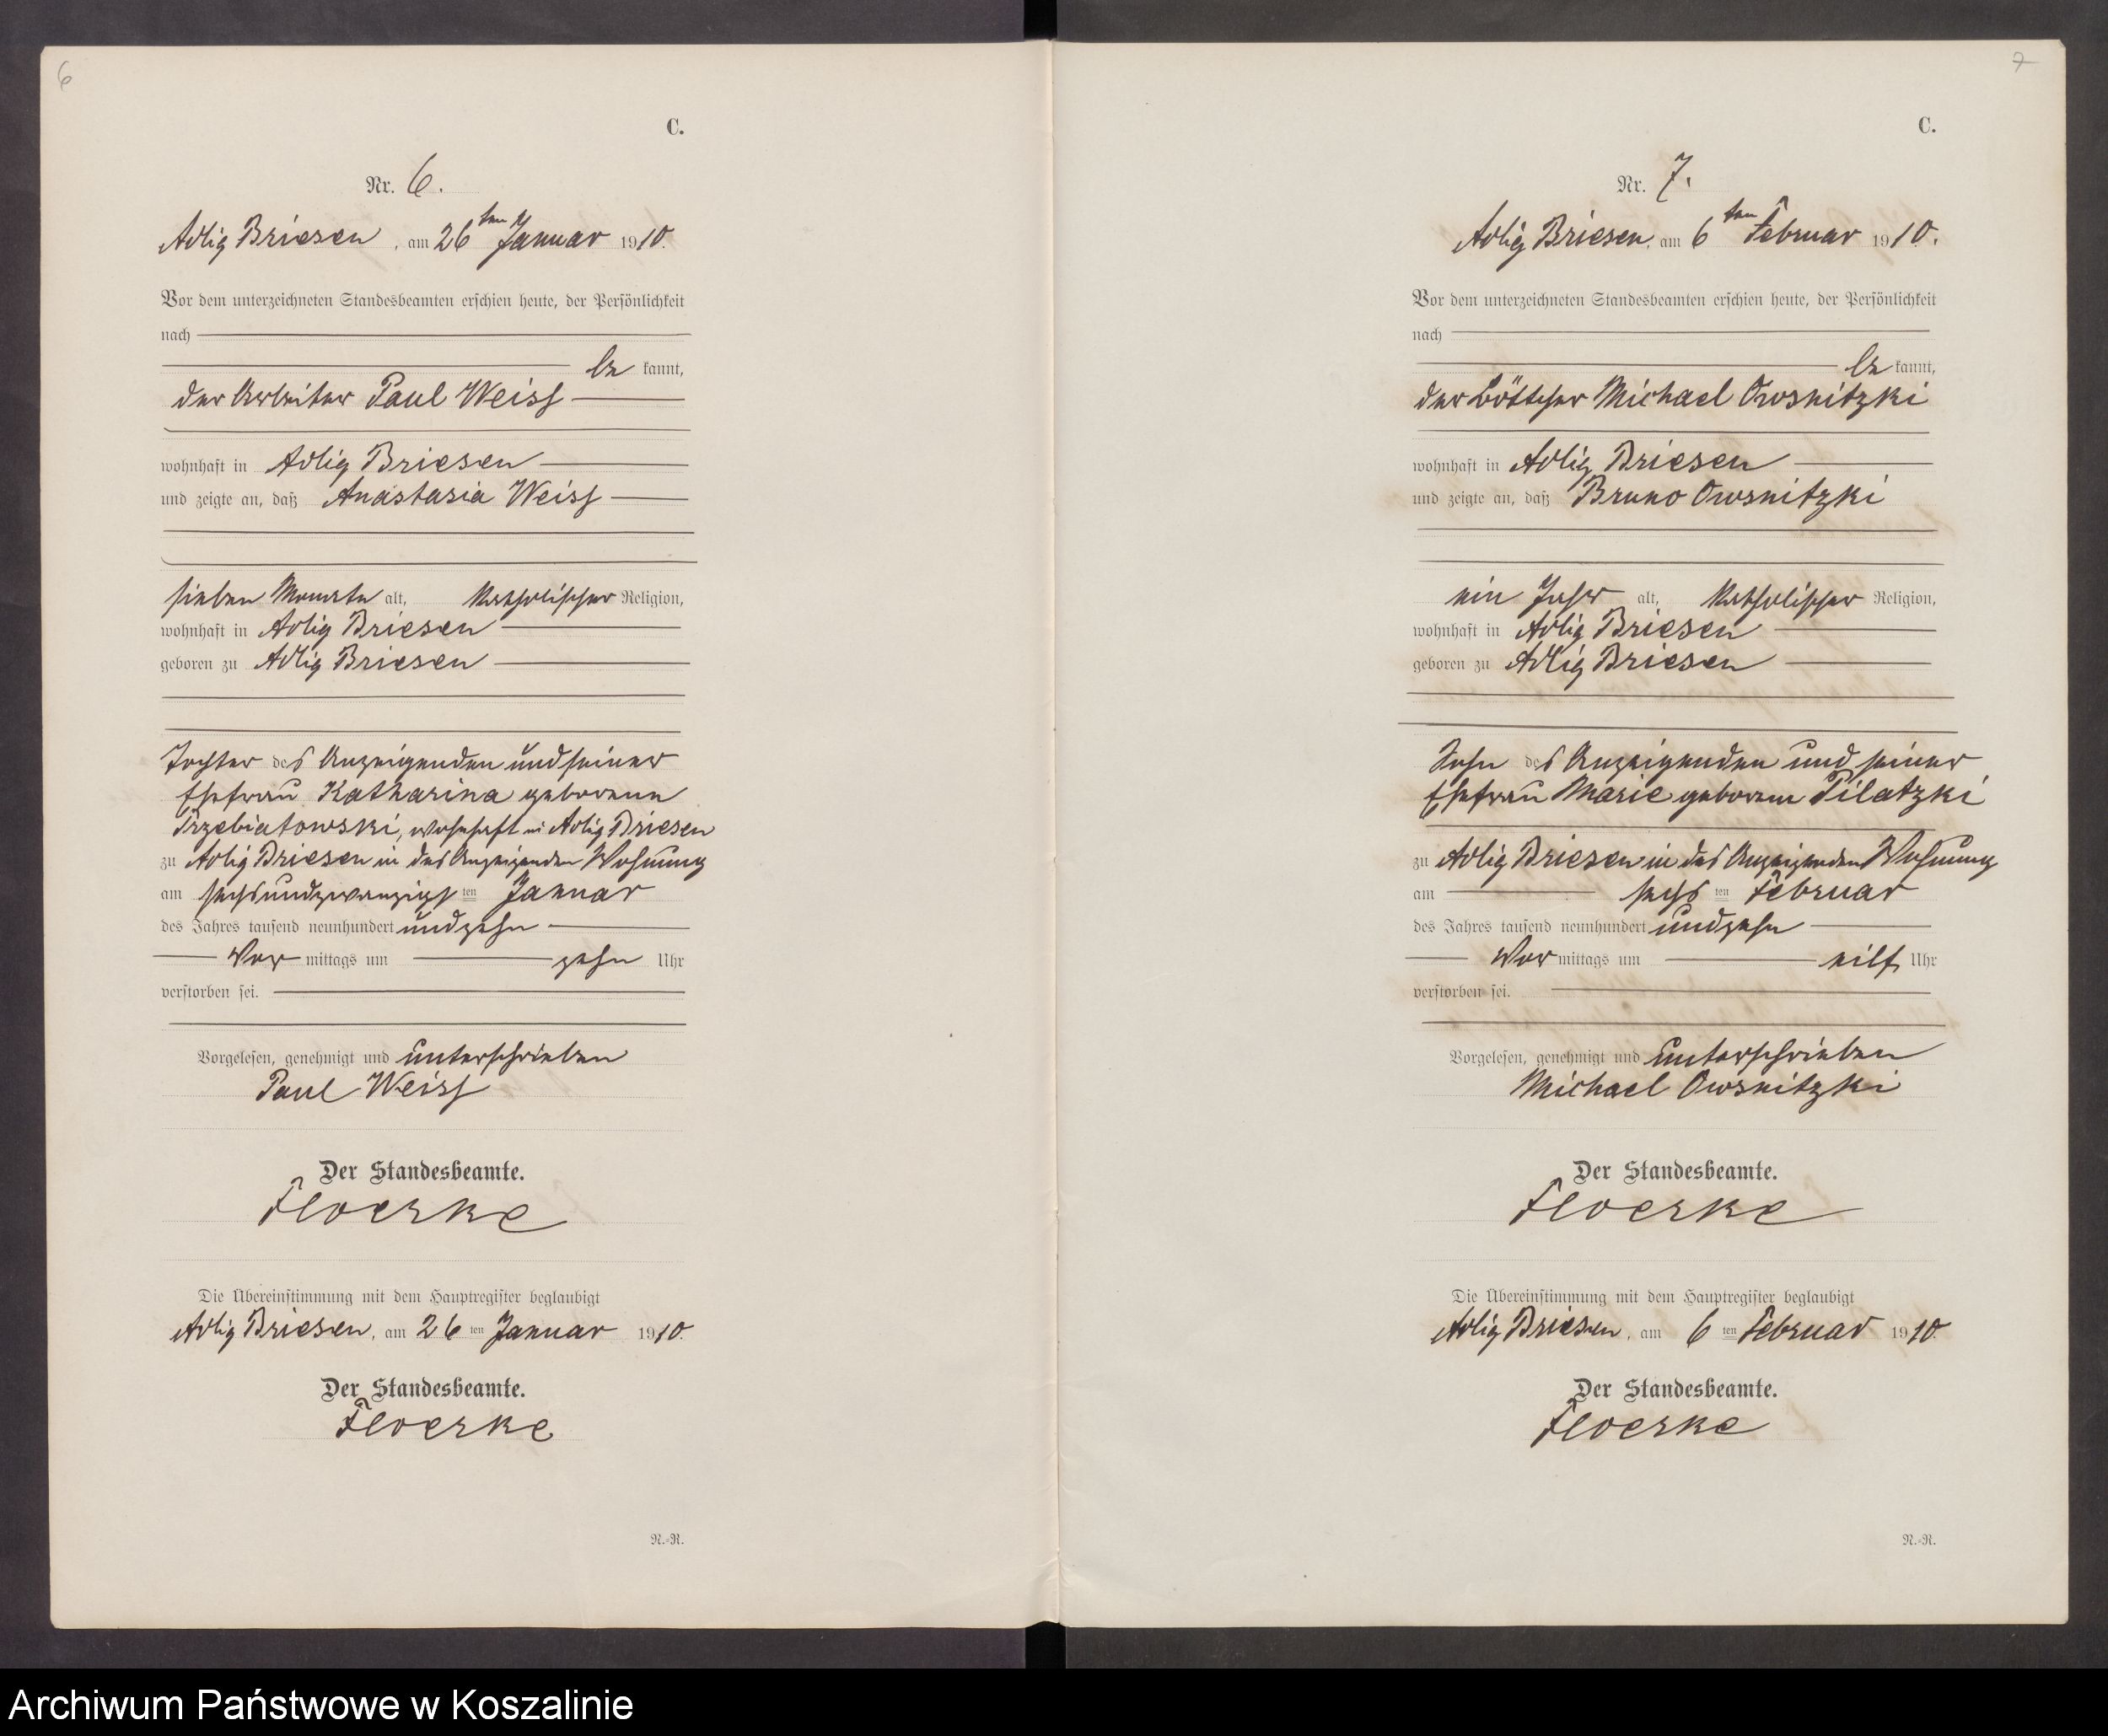 6
C.
Nr. 6.
Adlig Briesen, am 26ten Januar 1910.
Vor dem unterzeichneten Standesbeamten erschien heute, der Persönlichkeit
nach
be kannt,
der Arbeiter Paul Weiss
wohnhaft in Adlig Briesen
und zeigte an, daß Anastasia Weiss
sieben Monate alt, katholischer Religion,
wohnhaft in Adlig Briesen
geboren zu Adlig Briesen
Tochter des Anzeigenden und seiner
Ehefrau Katharina geborene
Trzebiatowski, wohnhaft in Adlig Briesen
zu Adlig Briesen in des Anzeigenden Wohnung
am sechsundzwanzigs ten Januar
des Jahres tausend neunhundert undzehn
Vor mittags um zehn Uhr
verstorben sei.
Vorgelesen, genehmigt und unterschrieben
Paul Weiss
Der Standesbeamte.
Floerke
Die Übereinstimmung mit dem Hauptregister beglaubigt
Adlig Briesen, am 26 ten Januar 1910.
Der Standesbeamte.
Floerke
N.-R.
7
C.
Nr. 7.
Adlig Briesen, am 6ten Februar 1910.
Vor dem unterzeichneten Standesbeamten erschien heute, der Persönlichkeit
nach
be kannt,
der Böttcher Michael Owsnitzki
wohnhaft in Adlig Briesen
und zeigte an, daß Bruno Owsnitzki
ein Jahr alt, katholischer Religion,
wohnhaft in Adlig Briesen
geboren zu Adlig Briesen
Sohn des Anzeigenden und seiner
Ehefrau Marie geborene Pilatzki
zu Adlig Briesen in des Anzeigenden Wohnung
am sechs ten Februar
des Jahres tausend neunhundert undzehn
Vor mittags um eilf Uhr
verstorben sei.
Vorgelesen, genehmigt und unterschrieben
Michael Owsnitzki
Der Standesbeamte.
Floerke
Die Übereinstimmung mit dem Hauptregister beglaubigt
Adlig Briesen, am 6 ten Februar 1910.
Der Standesbeamte.
Floerke
N.-R.
Archiwum Państwowe w Koszalinie